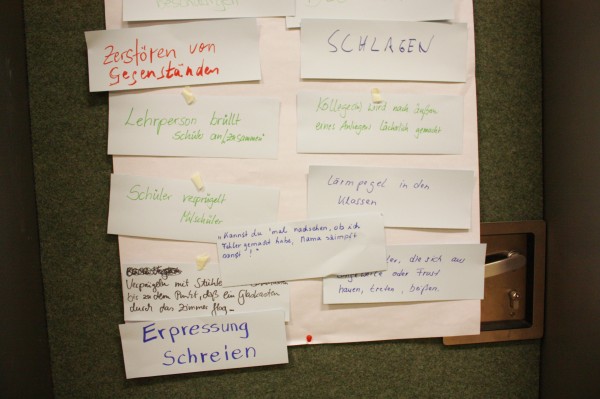 Zerstören von
Gegenständen
SCHLAGEN
Lehrperson brüllt
Schüler an/zusammen
Kollege(n) wird nach äußern
eines Anliegens lächerlich gemacht
Schüler verprügelt
Mitschüler
Lärmpegel in den
Klassen
"Kannst du 'mal nachsehen, ob ich
Fehler gemacht habe, Mama schimpft
sonst"!"
die sich aus
oder Frust
hauen, treten, beißen.
Verprügeln mit Stühle
bis zu dem Punkt, daß ein Glaskasten
durch das Zimmer flog.
Erpressung
Schreien